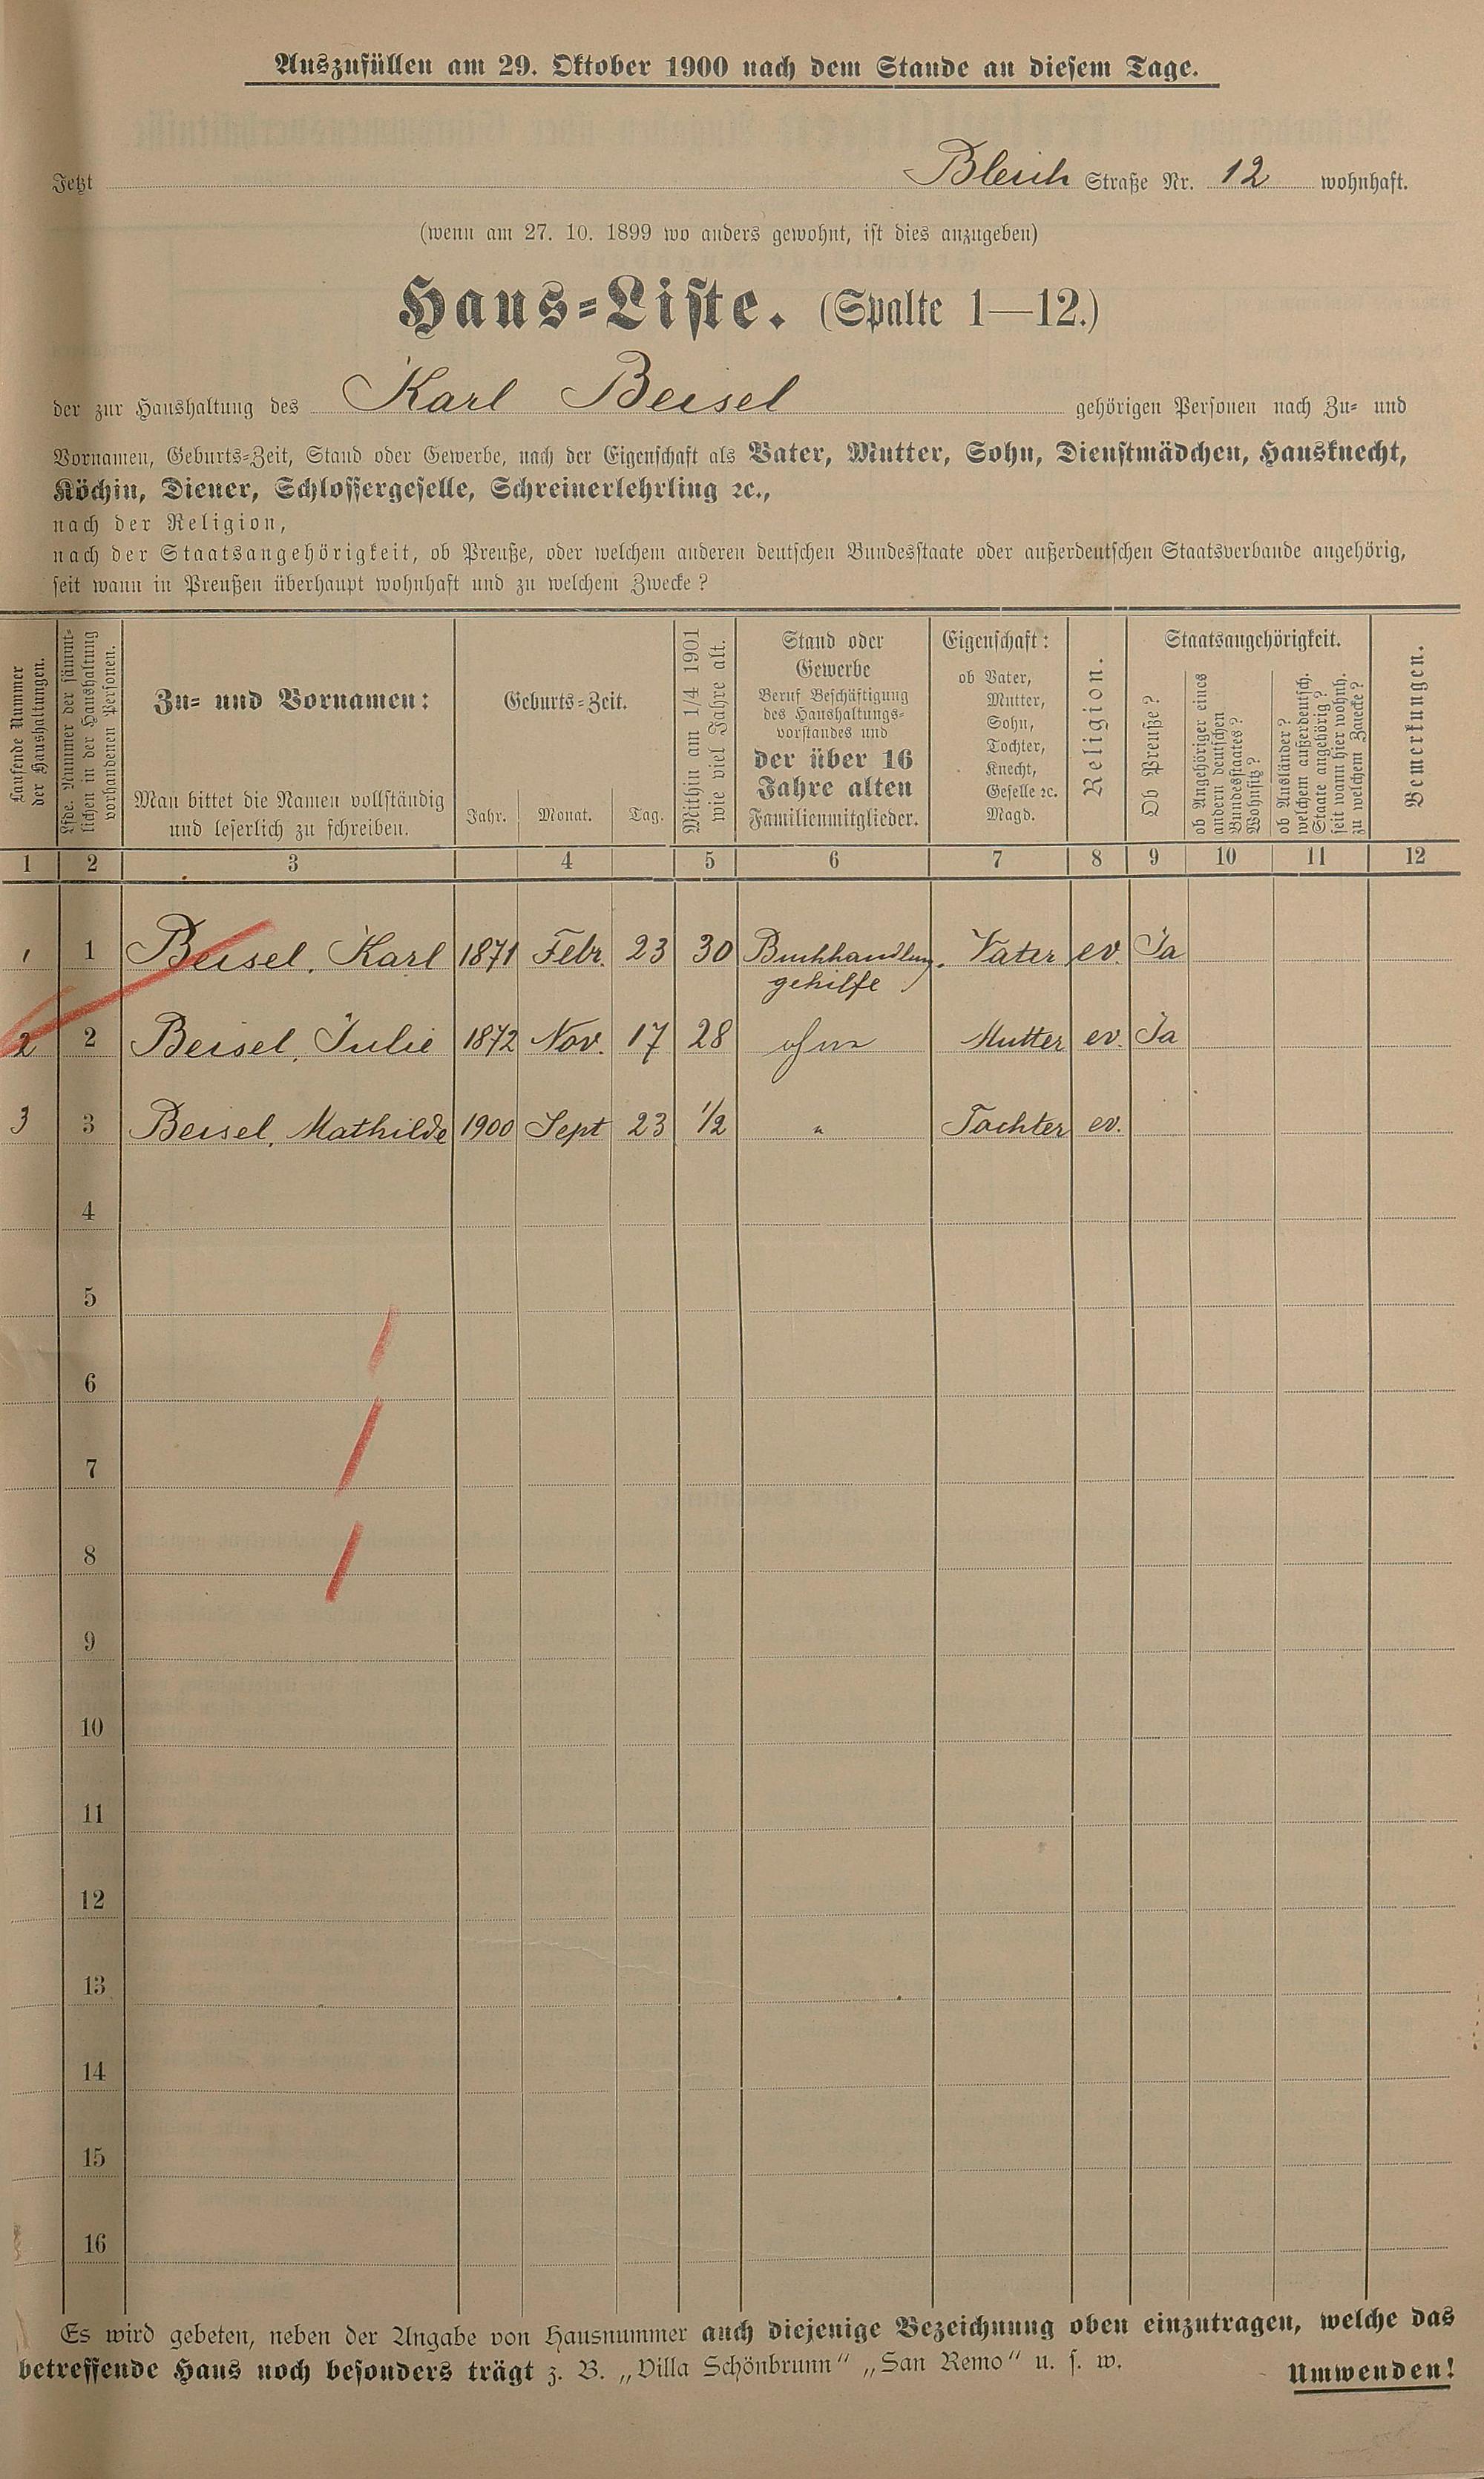 Auszufüllen am 29. Oktober 1900 nach dem Stande an diesem Tage.
Jetzt Bleich Straße Nr. 12 wohnhaft.
(wenn am 27. 10. 1899 wo anders gewohnt, ist dies anzugeben)
Haus-Liste. (Spalte 1—12.)
der zur Haushaltung des Karl Beisel gehörigen Personen nach Zu- und
Vornamen, Geburts-Zeit, Stand oder Gewerbe, nach der Eigenschaft als Vater, Mutter, Sohn, Dienstmädchen, Hausknecht,
Köchin, Diener, Schlossergeselle, Schreinerlehrling ꝛc.,
nach der Religion,
nach der Staatsangehörigkeit, ob Preuße, oder welchem anderen deutschen Bundesstaate oder außerdeutschen Staatsverbande angehörig,
seit wann in Preußen überhaupt wohnhaft und zu welchem Zwecke?
Laufende Nummer
der Haushaltungen.
Lfde. Nummer der sämmt-
lichen in der Haushaltung
vorhandenen Personen.
Zu- und Vornamen:
Man bittet die Namen vollständig
und leserlich zu schreiben.
Geburts-Zeit.
Jahr. Monat. Tag.
Mithin am 1/4 1901
wie viel Jahre alt.
Stand oder
Gewerbe
Beruf Beschäftigung
des Haushaltungs-
vorstandes und
der über 16
Jahre alten
Familienmitglieder.
Eigenschaft:
ob Vater,
Mutter,
Sohn,
Tochter,
Knecht,
Geselle ꝛc.
Magd.
Religion.
Staatsangehörigkeit.
Ob Preuße?
ob Angehöriger eines
andern deutschen
Bundesstaates?
Wohnsitz?
ob Ausländer?
welchem außerdeutsch.
Staate angehörig?
seit wann hier wohnh.
zu welchem Zwecke?
Bemerkungen.
1 2 3 4 5 6 7 8 9 10 11 12
1 1 Beisel, Karl 1871 Febr. 23 30 Buchhandlung. Vater ev. Ja
gehilfe
2 2 Beisel, Julie 1872 Nov. 17 28 ohne Mutter ev. Ja
3 3 Beisel, Mathilde 1900 Sept 23 1/2 " Tochter ev.
4
5
6
7
8
9
10
11
12
13
14
15
16
Es wird gebeten, neben der Angabe von Hausnummer auch diejenige Bezeichnung oben einzutragen, welche das
betreffende Haus noch besonders trägt z. B. „Villa Schönbrunn“ „San Remo“ u. s. w.
Umwenden!